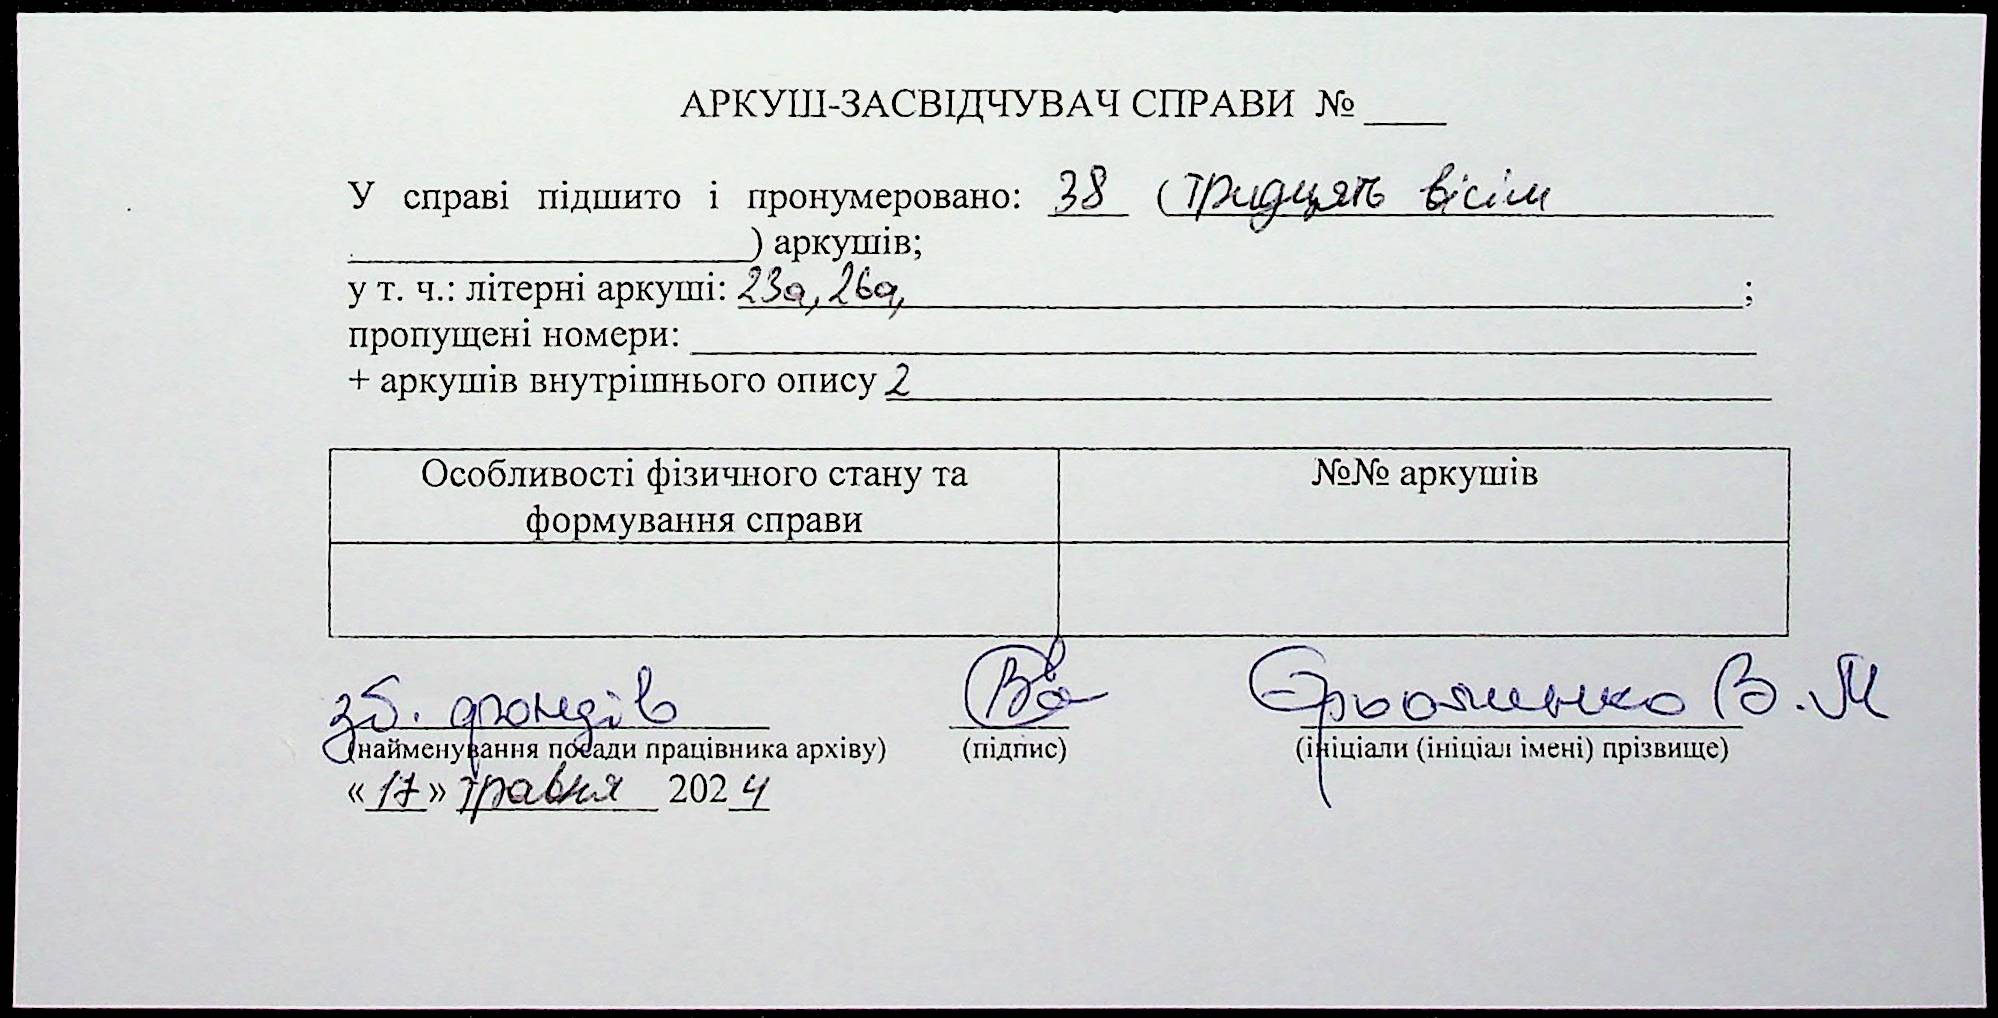 АРКУШ-ЗАСВІДЧУВАЧ СПРАВИ № ____
У справі підшито і пронумеровано: 38 (тридцять вісім
) аркушів;
у т. ч.: літерні аркуші: 23а, 26а, ;
пропущені номери:
+ аркушів внутрішнього опису 2
Особливості фізичного стану та
формування справи
№№ аркушів
зб. фондів В. М
(найменування посади працівника архіву) (підпис) (ініціали (ініціал імені) прізвище)
«17» травня 2024